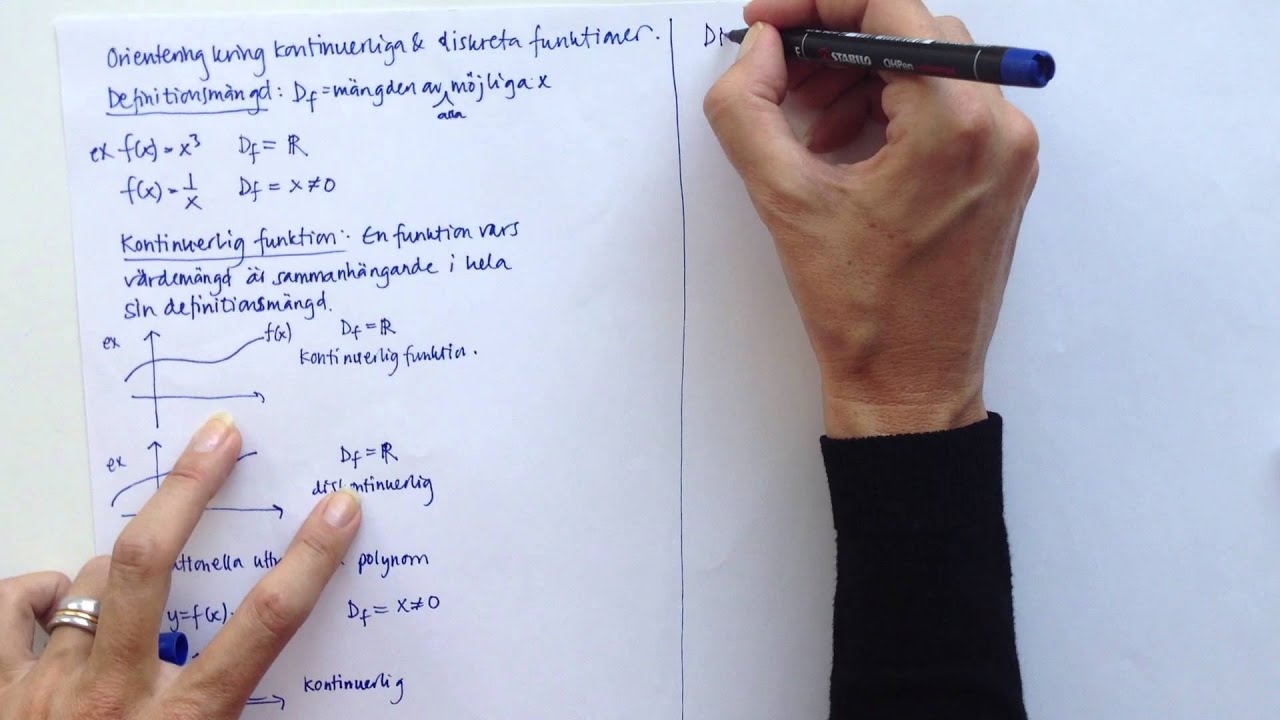 Orientering kring kontinuerliga & diskreta funktioner.
Definitionsmängd: Df = mängden av alla möjliga x
ex f(x) = x³ Df = ℝ
f(x) = 1/x Df = x ≠ 0
Kontinuerlig funktion: En funktion vars
värdemängd är sammanhängande i hela
sin definitionsmängd.
ex f(x) Df = ℝ
kontinuerlig funktion.
ex Df = ℝ
diskontinuerlig
polynom
y = f(x) Df = x ≠ 0
kontinuerlig
STABILO OHPen